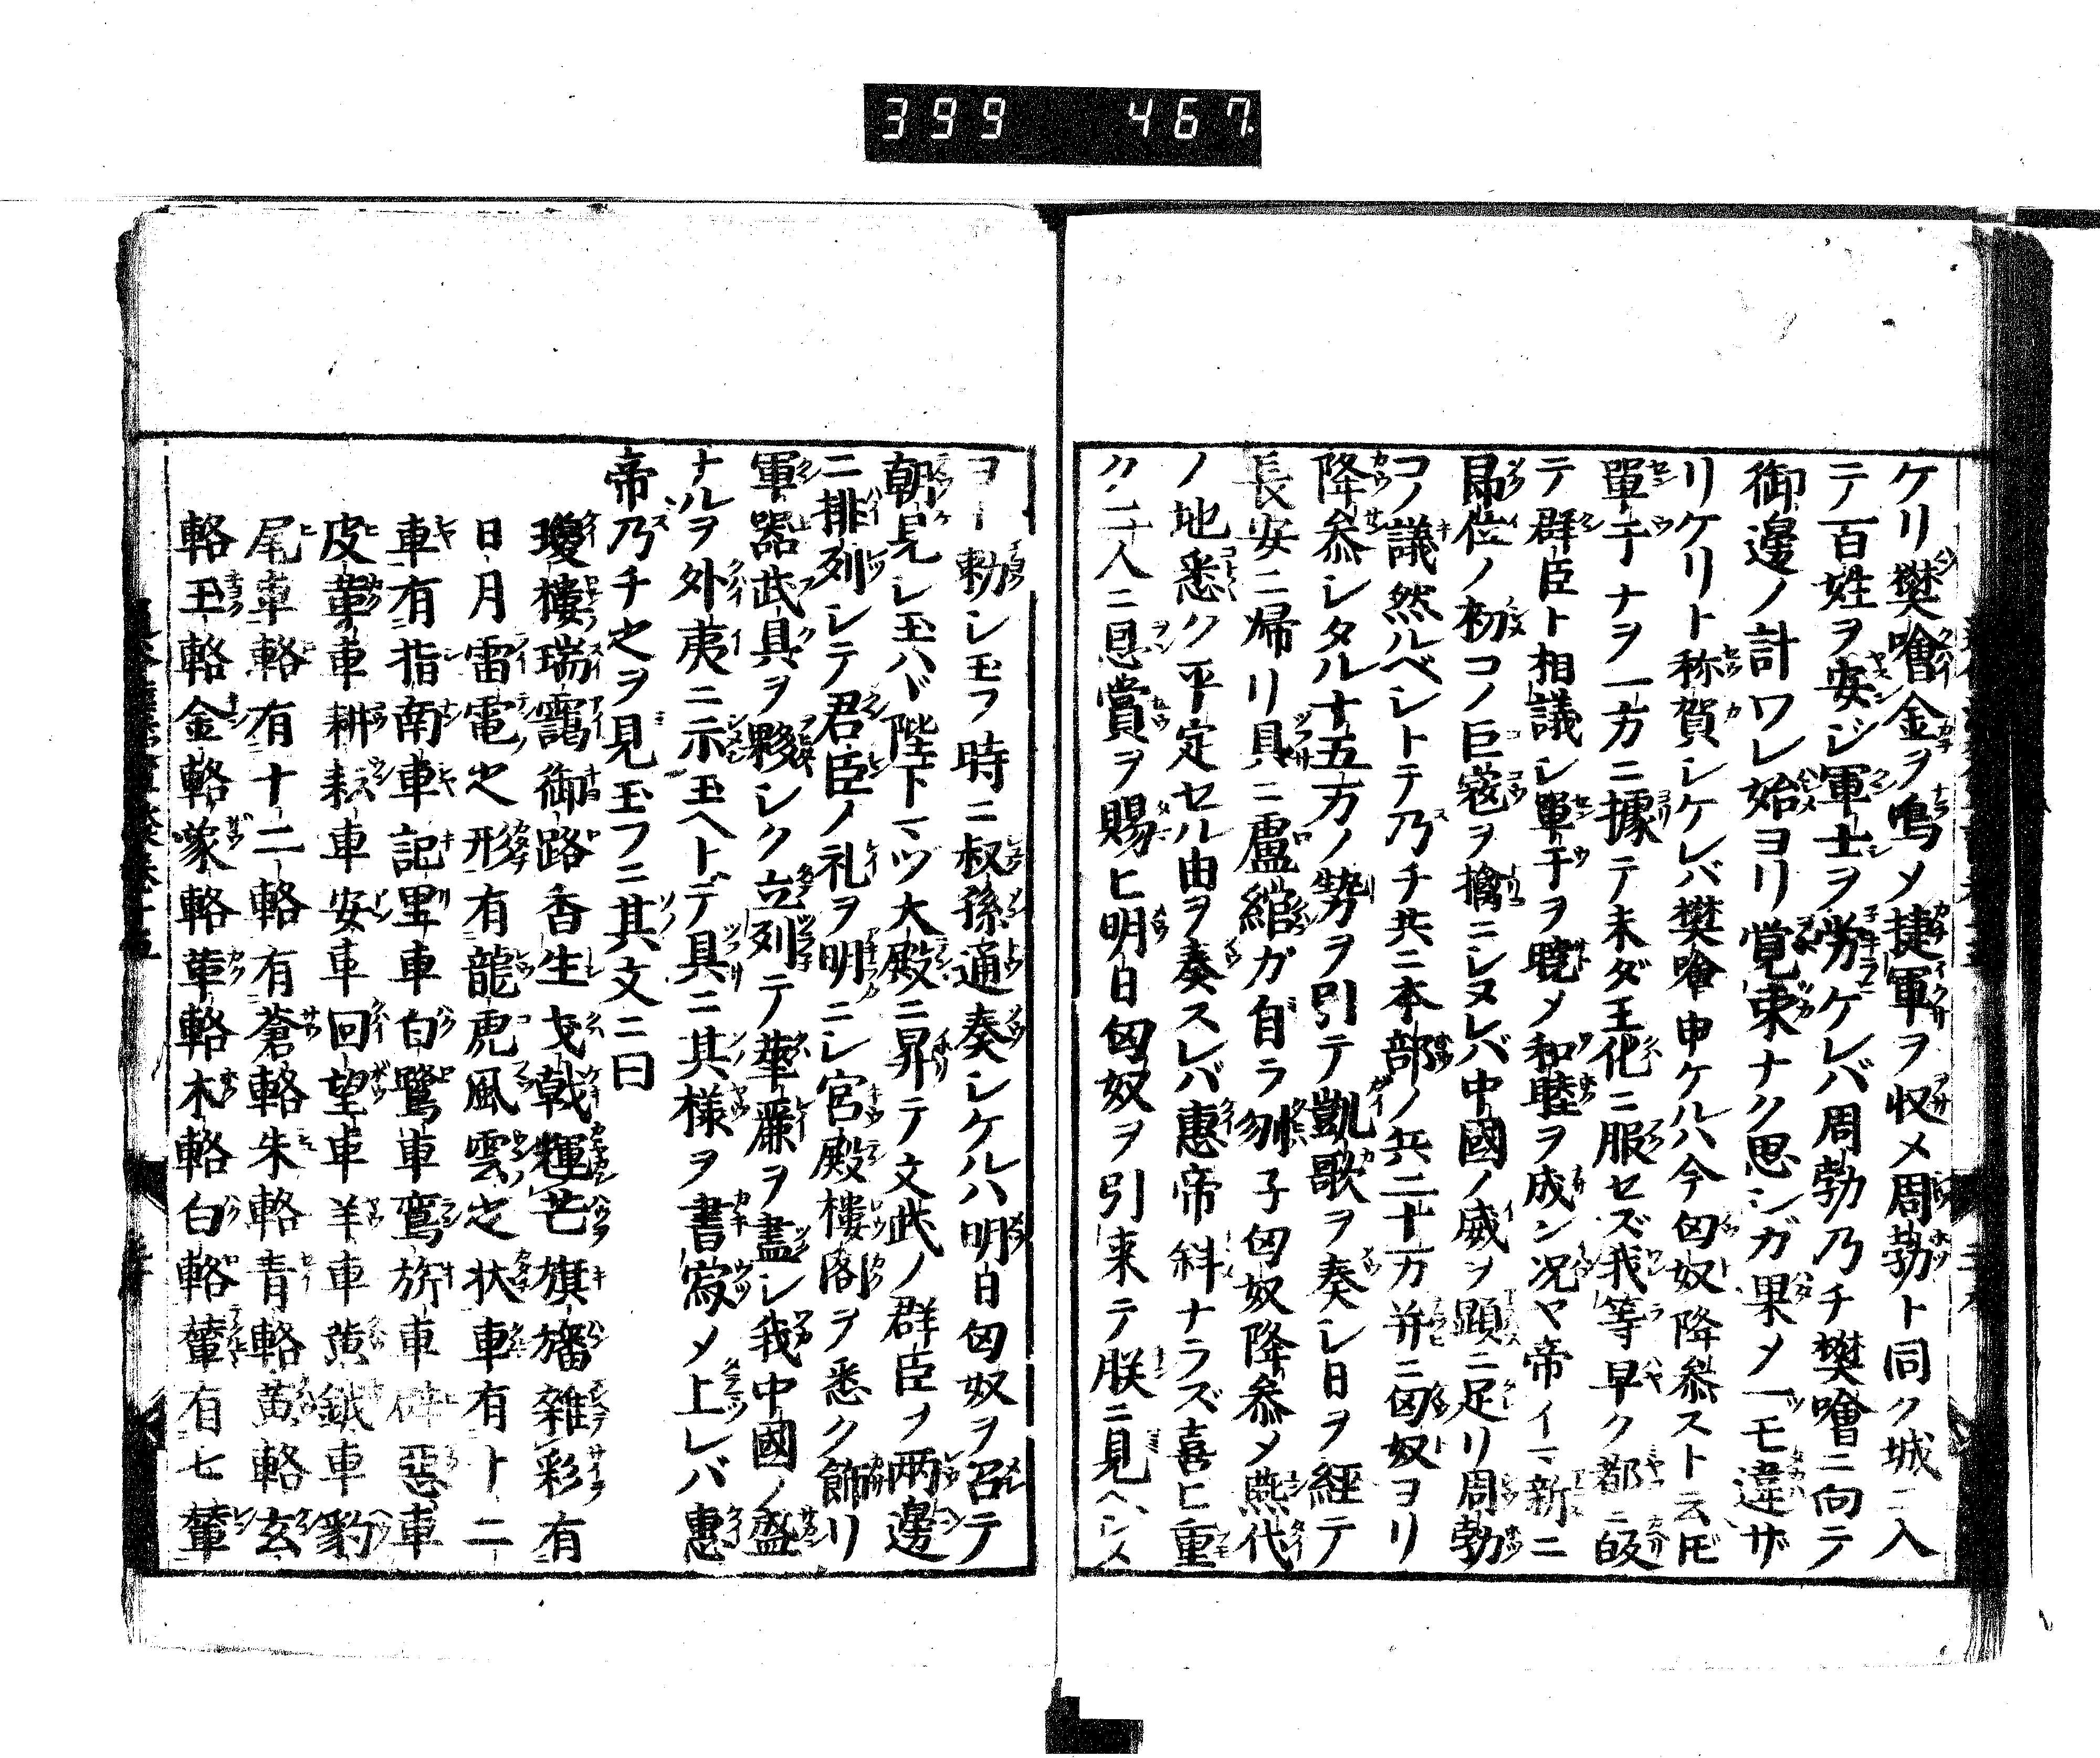 399 467
ケリ樊噲金ヲ鳴メ捷軍ヲ收メ周勃ト同ク城ニ入
テ百姓ヲ安ジ軍士ヲ労ケレバ周勃乃チ樊噲ニ向テ
御邊ノ計ワレ始ヨリ覚束ナク思シガ果メ一モ違ザ
リケリト称賀シケレバ樊噲申ケルハ今匈奴降叅スト云𪜈
單于ナヲ一方ニ據テ未ダ王化ニ服セズ我等早ク都ニ皈
テ群臣ト相議シ單于ヲ暁メ和睦ヲ成ン况ヤ帝イマ新ニ
即位ノ初コノ巨寇ヲ擒ニシヌレバ中國ノ威ヲ顕ニ足リ周勃
コノ議然ルベシトテ乃チ共ニ本部ノ兵二十万并ニ匈奴ヨリ
降叅シタル十五万ノ勢ヲ引テ凱歌ヲ奏シ日ヲ経テ
長安ニ帰リ具ニ盧綰ガ自ラ刎子匈奴降叅メ燕代
ノ地悉ク平定セル由ヲ奏スレバ惠帝斜ナラズ喜ヒ重
ク二人ニ恩賞ヲ賜ヒ明日匈奴ヲ引来テ朕ニ見ヘシメ
ヨト勅シ玉フ時ニ叔孫通奏シケルハ明日匈奴ヲ召テ
朝見シ玉ハヾ陛下マヅ大殿ニ昇テ文武ノ群臣ヲ両邊
ニ排列シテ君臣ノ礼ヲ明ニシ宮殿樓閣ヲ悉ク餝リ
軍器武具ヲ夥シク立列テ華麗ヲ盡シ我中國ノ盛
ナルヲ外夷ニ示玉ヘトデ具ニ其様ヲ書寫メ上レバ惠
帝乃チ之ヲ見玉フニ其文ニ曰
瓊樓瑞靄御路香生戈戟輝芒旗旛雜彩有
日月雷電之形有龍虎風雲之状車有十二
車有指南車記里車白鷺車鸞旂車辟惡車
皮車車耕耘車安車回望車羊車黄鉞車豹
尾車輅有十二輅有蒼輅朱輅青輅黄輅玄
輅玉輅金輅象輅革輅木輅白輅輦有七輦